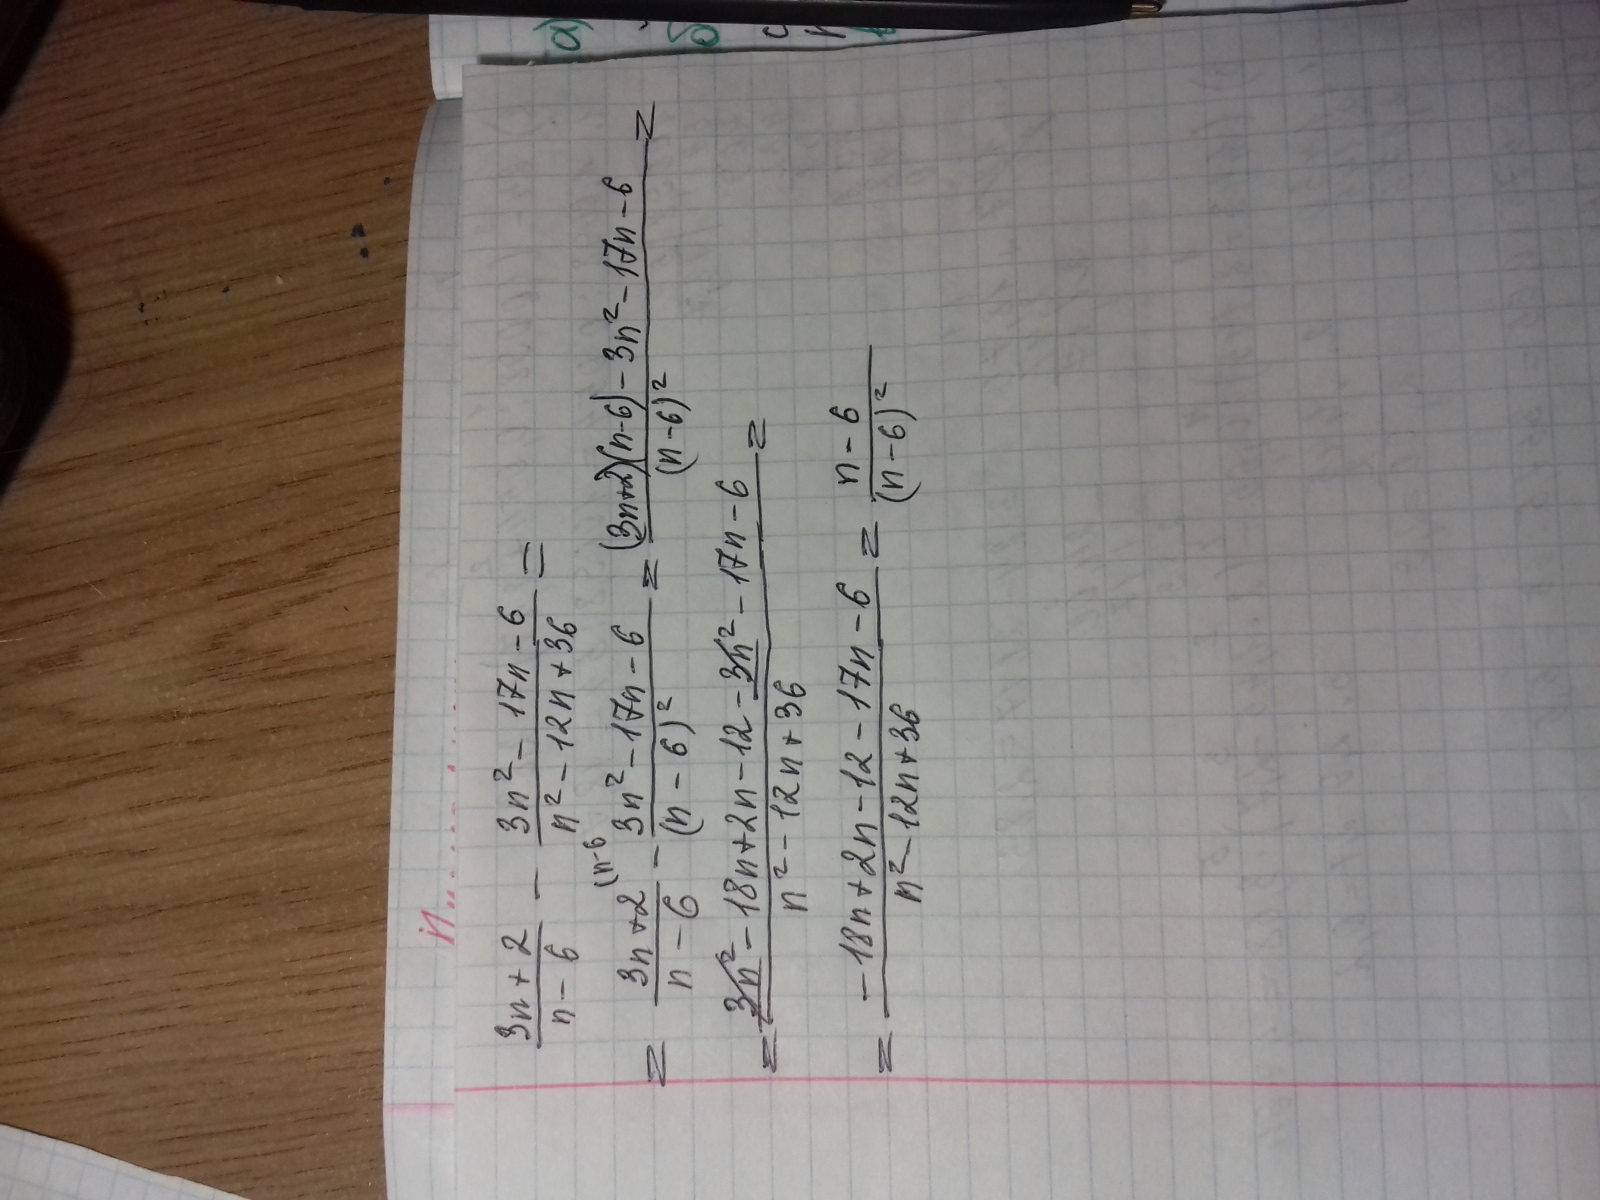 a)
б)
(3n+2)/(n-6) - (3n² - 17n - 6)/(n² - 12n + 36) =
= (3n+2)/(n-6) (n-6 - (3n² - 17n - 6)/(n-6)² = ((3n+2)(n-6) - 3n² - 17n - 6)/(n-6)² =
= (3n² - 18n + 2n - 12 - 3n² - 17n - 6)/(n² - 12n + 36) =
= (-18n + 2n - 12 - 17n - 6)/(n² - 12n + 36) = (n - 6)/(n-6)²